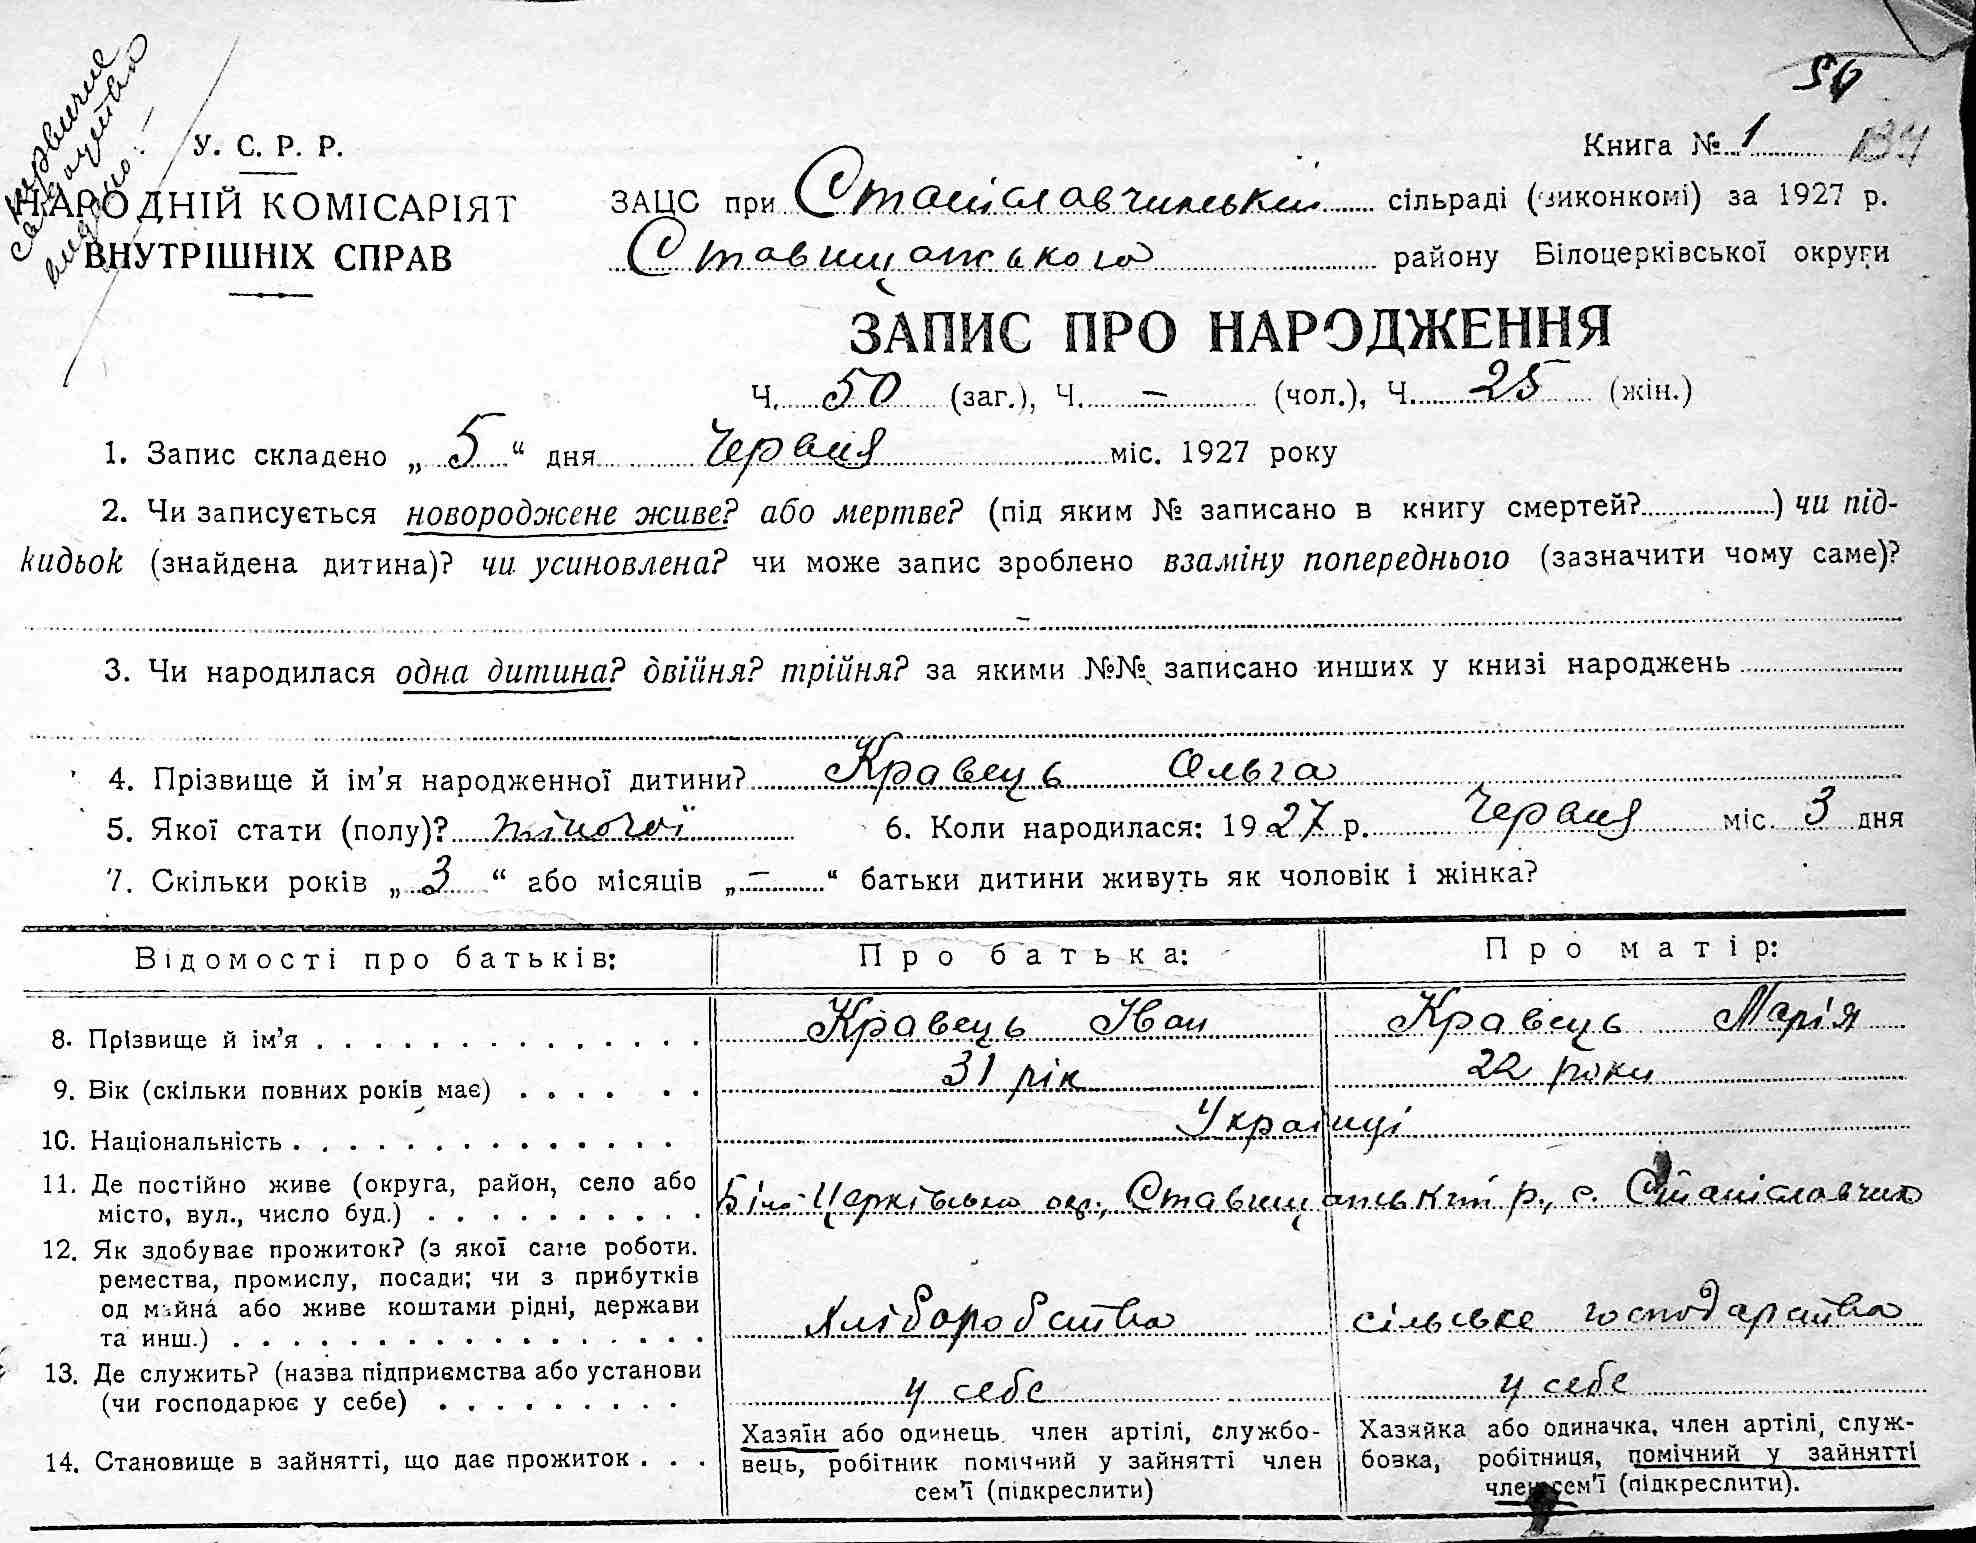 первичне
свідоцтво
видано!
50
У. С. Р. Р.
НАРОДНІЙ КОМІСАРІЯТ
ВНУТРІШНІХ СПРАВ
Книга № 1
ЗАЦС при Станіславчинській сільраді (виконкомі) за 1927 р.
Ставищанського району Білоцерківської округи
ЗАПИС ПРО НАРОДЖЕННЯ
Ч. 50 (заг.), Ч. – (чол.), Ч. 25 (жін.)
1. Запис складено „ 5 “ дня Червня міс. 1927 року
2. Чи записується новороджене живе? або мертве? (під яким № записано в книгу смертей? ) чи під-
кидьок (знайдена дитина)? чи усиновлена? чи може запис зроблено взаміну попереднього (зазначити чому саме)?
–
3. Чи народилася одна дитина? двійня? трійня? за якими №№ записано инших у книзі народжень
4. Прізвище й ім’я народженної дитини? Кравець Ольга
5. Якої стати (полу)? жіночої 6. Коли народилася: 1927 р. Червня міс. 3 дня
7. Скільки років „ 3 “ або місяців „ – “ батьки дитини живуть як чоловік і жінка?
Відомості про батьків: Про батька: Про матір:
8. Прізвище й ім’я Кравець Іван Кравець Марія
9. Вік (скільки повних років має) 31 рік 22 роки
10. Національність Українці
11. Де постійно живе (округа, район, село або
місто, вул., число буд.) Біло-Церківська окр., Ставищанський р., с. Станіславчик
12. Як здобуває прожиток? (з якої саме роботи.
ремества, промислу, посади; чи з прибутків
од майна або живе коштами рідні, держави
та инш.) Хліборобства сільське господарства
13. Де служить? (назва підприємства або установи
(чи господарює у себе) у себе у себе
14. Становище в зайнятті, що дає прожиток
Хазяїн або одинець, член артілі, службо-
вець, робітник помічний у зайнятті член
сем’ї (підкреслити)
Хазяйка або одиначка, член артілі, служ-
бовка, робітниця, помічний у зайнятті
член сем’ї (підкреслити).